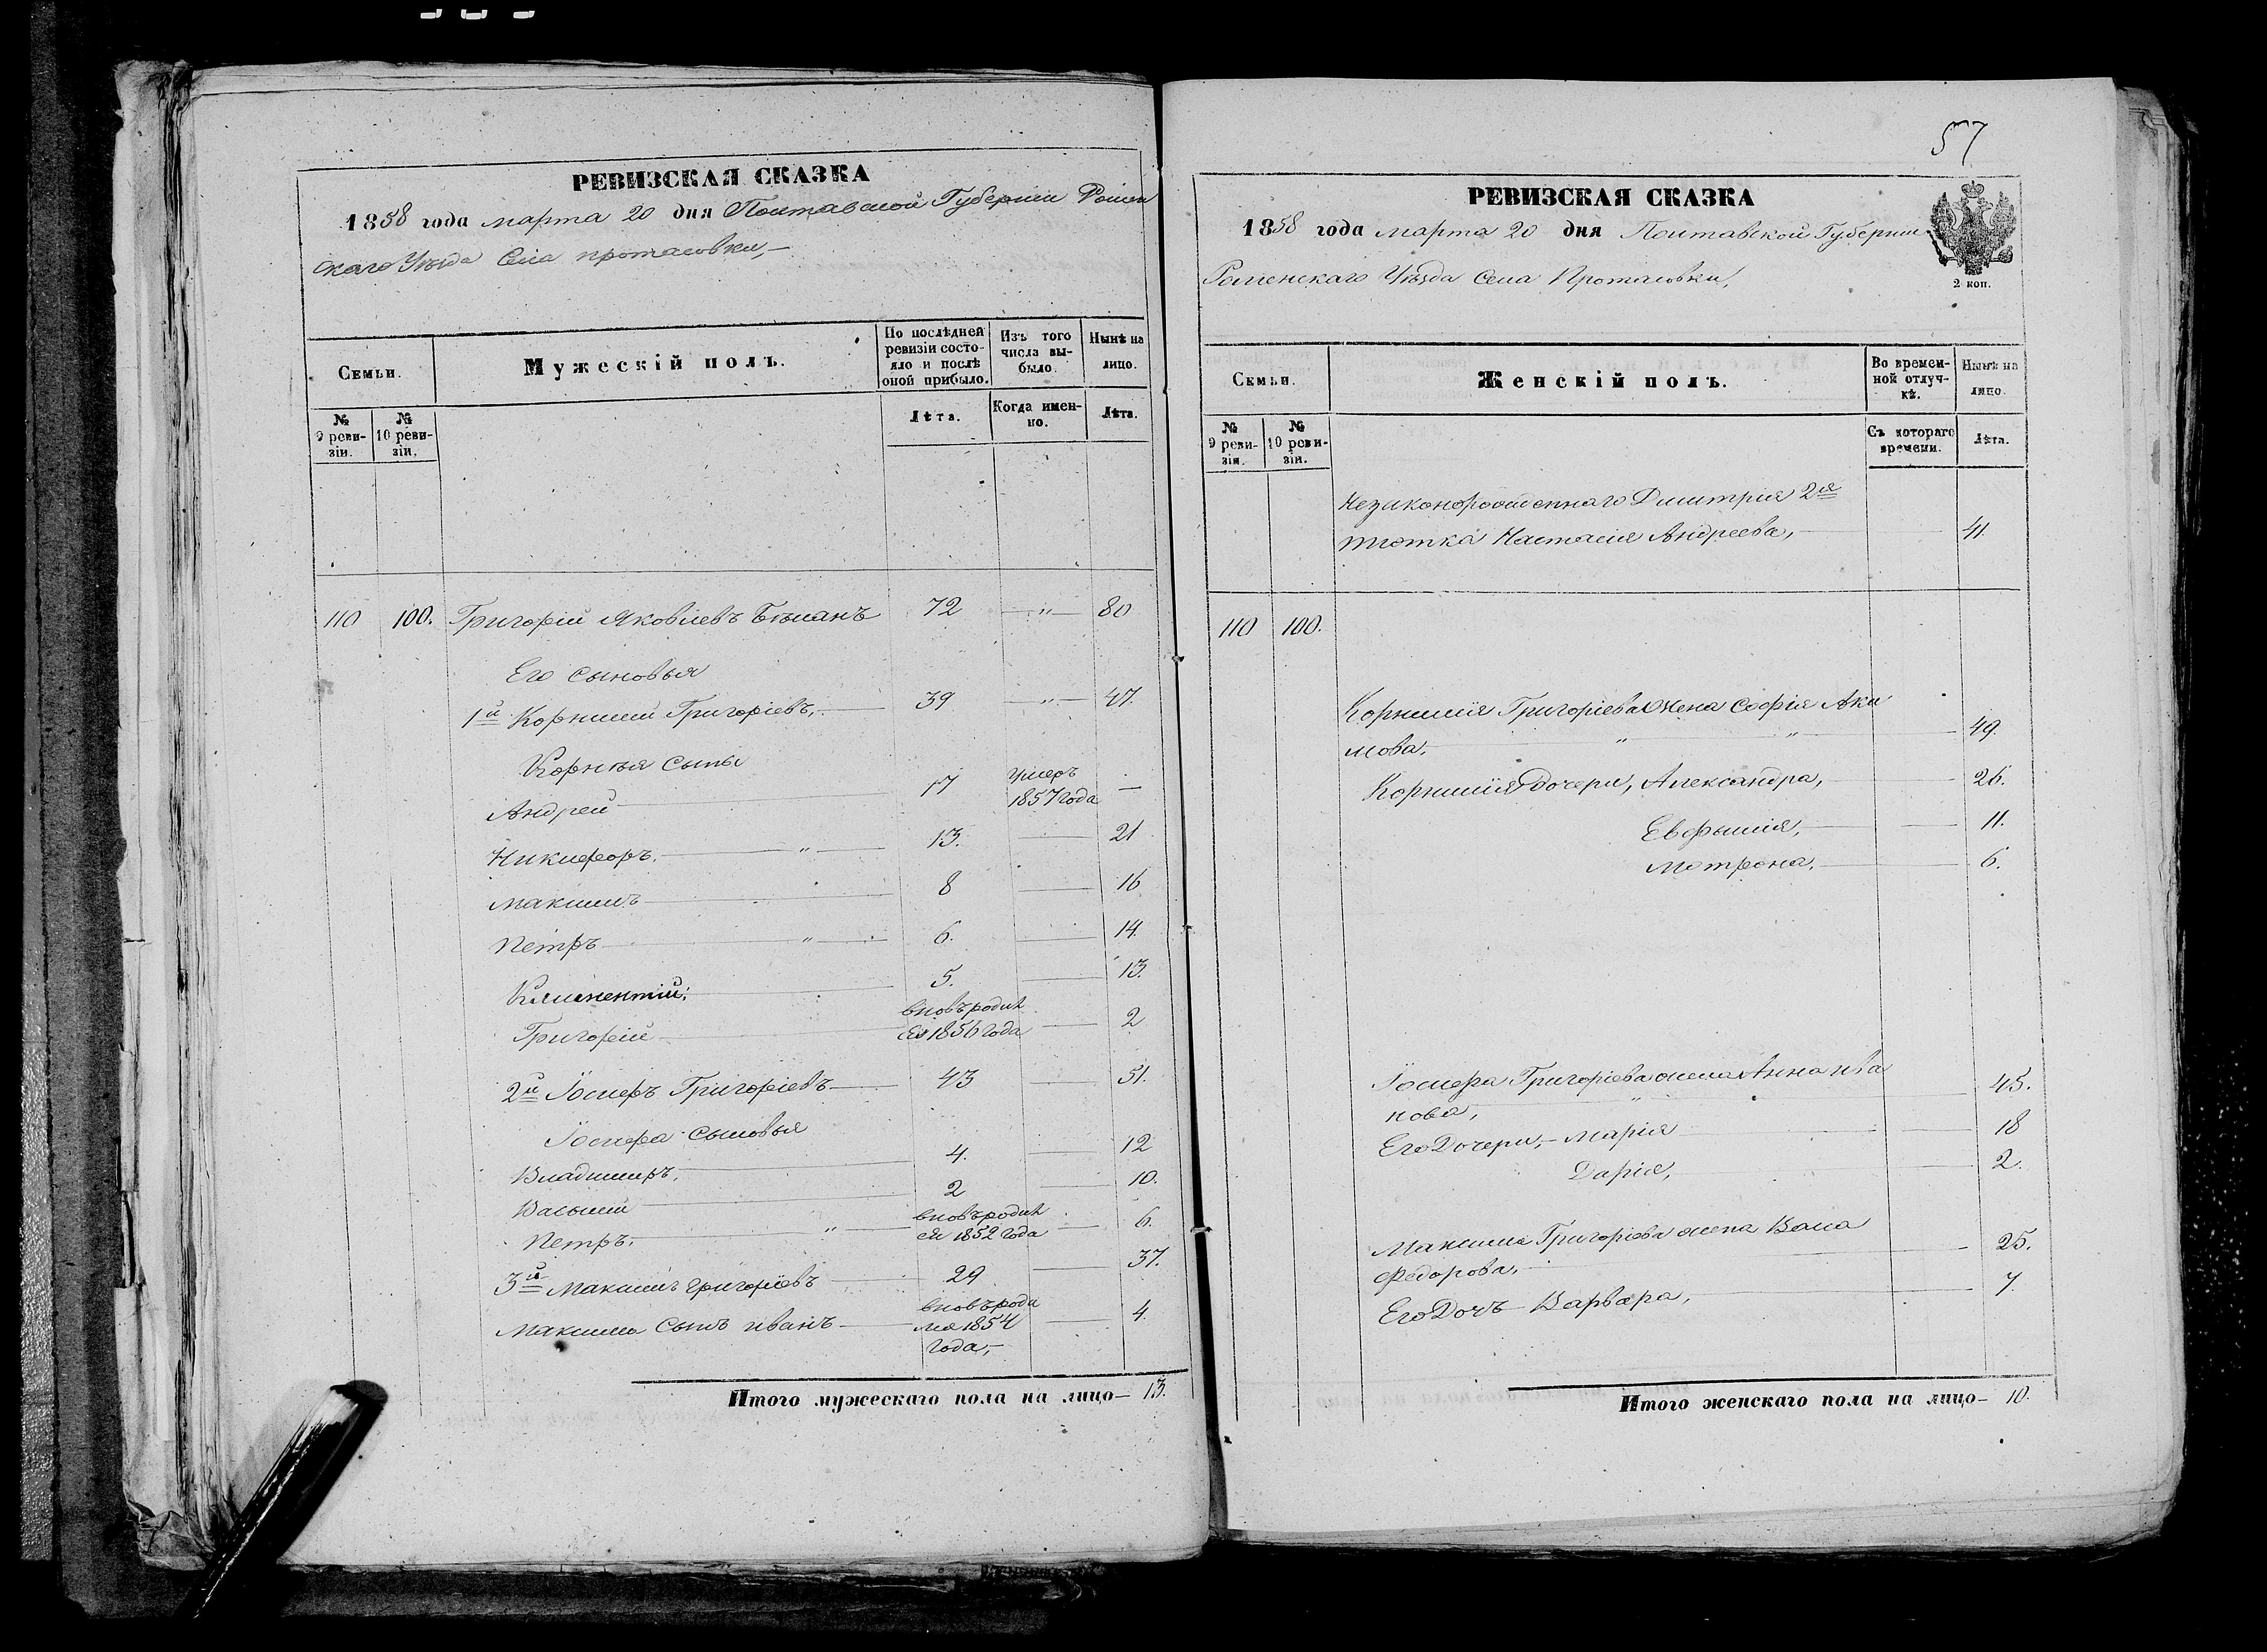 57
РЕВИЗСКАЯ СКАЗКА
1858 года марта 20 дня Полтавской Губернии Ромен
скаго Уѣзда Села протасовки,—
Семьи.
Мужескій полъ.
По послѣдней ревизіи состояло и послѣ оной прибыло.
Изъ того числа выбыло.
Нынѣ на лицо.
№ 9 ревизіи.
№ 10 ревизіи.
Лѣта.
Когда именно.
Лѣта.
110 100. Григорій Яковлевъ 72 — " — 80
Его сыновья
1й Корнилій Григоріевъ, 39 — " — 47.
Корнѣя сыны
Андрей 17 умеръ 1857 года —
Никифоръ. " 13. 21
Максимъ 8 16
Петръ " 6. 14.
Климентій; 5. 13.
Григорій вновь родил ся 1856 года 2
2й Іосифъ Григоріевъ 43 51.
Іосифа сыновья
Владимиръ. 4. 12
Василій 2 10.
Петръ. " вновь родил ся 1852 года 6.
3й Максимъ григоріевъ 29 37.
Максима сынъ иванъ вновь роди лся 1854 года,— 4.
Итого мужескаго пола на лицо— 13.
РЕВИЗСКАЯ СКАЗКА
1858 года марта 20 дня Полтавской Губернии
Роменскаго Уѣзда Села Протасовки,
2 коп.
Семьи.
Женскій полъ.
Во временной отлучкѣ.
Нынѣ на лицо.
№ 9 ревизія.
№ 10 ревизіи.
Съ котораго времени.
Лѣта.
Незаконорожденнаго Дмитрія 2я
тіотка Настасія Андреева, 41.
110 100.
Корнилія Григоріева Жена Софія Аки
мова. " " 49.
Корнилія Дочери, Александра, 26.
Евфимія, 11.
Мотрона, 6.
Іосифа Григоріева жена Анна ива
нова, " 45.
Его Дочери,— Марія 18
Дарія, 2.
Максима Григоріева жена
Федорова. 25.
Его Дочъ Варвара, 7.
Итого женскаго пола на лицо— 10.